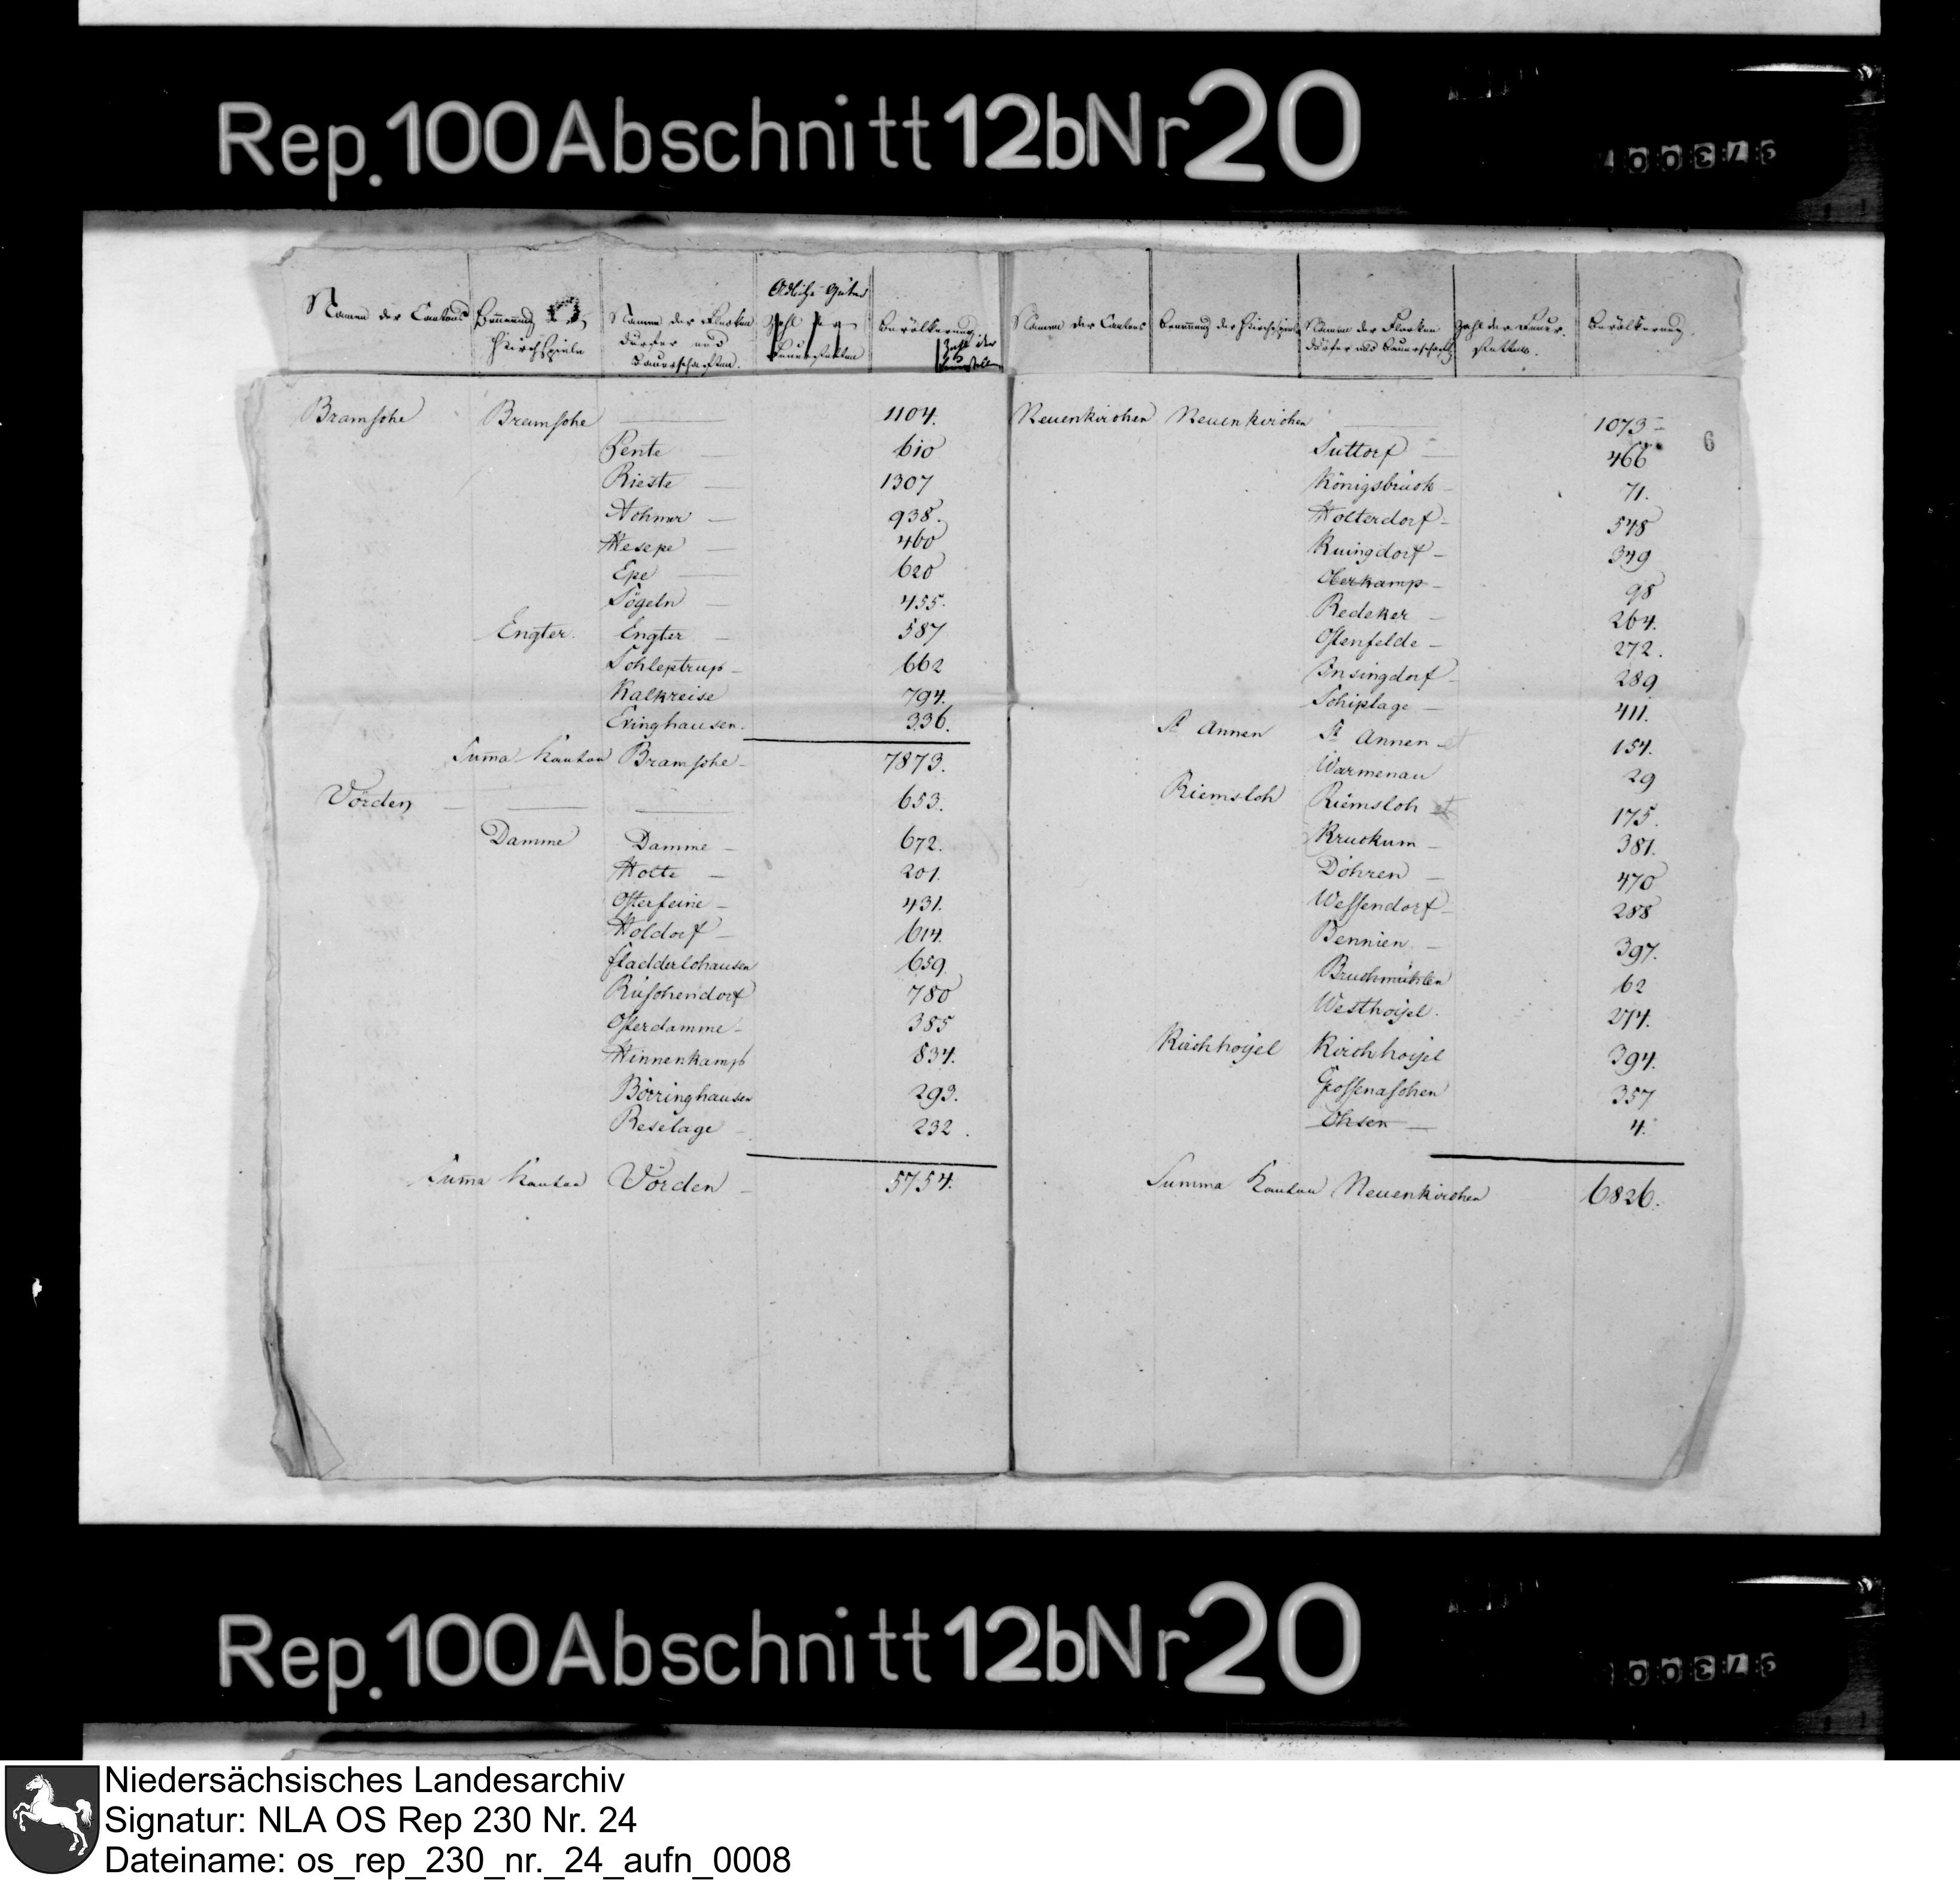 Rep. 100 Abschnitt 12b Nr 20
Namen der Cantons
Benennung
Kirchspiele
Namen der Flecken
Dörfer und
Bauerschaften.
Adliche Güter
Zahl der
Feuerstellen
Bevölkerung.
Zahl der
Feuerstellen
Bramsche Bramsche 1104.
Pente 610
Rieste 1307
Achmer 938.
Hesepe 460
Epe 620
Sögeln 455.
Engter. Engter 587
Schleptrup 662
Kalkreise 794.
Evinghausen. 336.
Suma Kanton Bramsche 7873.
Vörden 653.
Damme Damme 672.
Holte 201.
Osterfeine 431.
Holdorf 614.
Fladderlohausen 659.
Rüschendorf 780
Osterdamme 385
Hinnenkamp 834.
Börringhausen 293.
Reselage 232.
Suma Kanton Vörden 5754.
Namen der Cantons
Benennung der Kirchspiele
Namen der Flecken
Dörfer und Bauerschaften
Zahl der Feuer-
stellen.
Bevölkerung.
6
Neuenkirchen Neuenkirchen 1073
Suttorf 466
Königsbrück 71.
Holterdorf 548
Kuingdorf 349
Oberkamp 98
Redeker 264.
Ostenfelde 272.
Insingdorf 289
Schiplage 411.
St Annen St Annen et 154.
Warmenau 29
Riemsloh Riemsloh et 175.
Kruckum 381.
Döhren 470
Wessendorf 288
Bennien 397.
Bruchmühlen 62
Westhoyel. 274.
Kirchhoyel Kirchhoyel 394.
Grossenaschen 357
Ohsen 4.
Summa Kanton Neuenkirchen 6826.
Rep. 100 Abschnitt 12b Nr 20
Niedersächsisches Landesarchiv
Signatur: NLA OS Rep 230 Nr. 24
Dateiname: os_rep_230_nr._24_aufn_0008